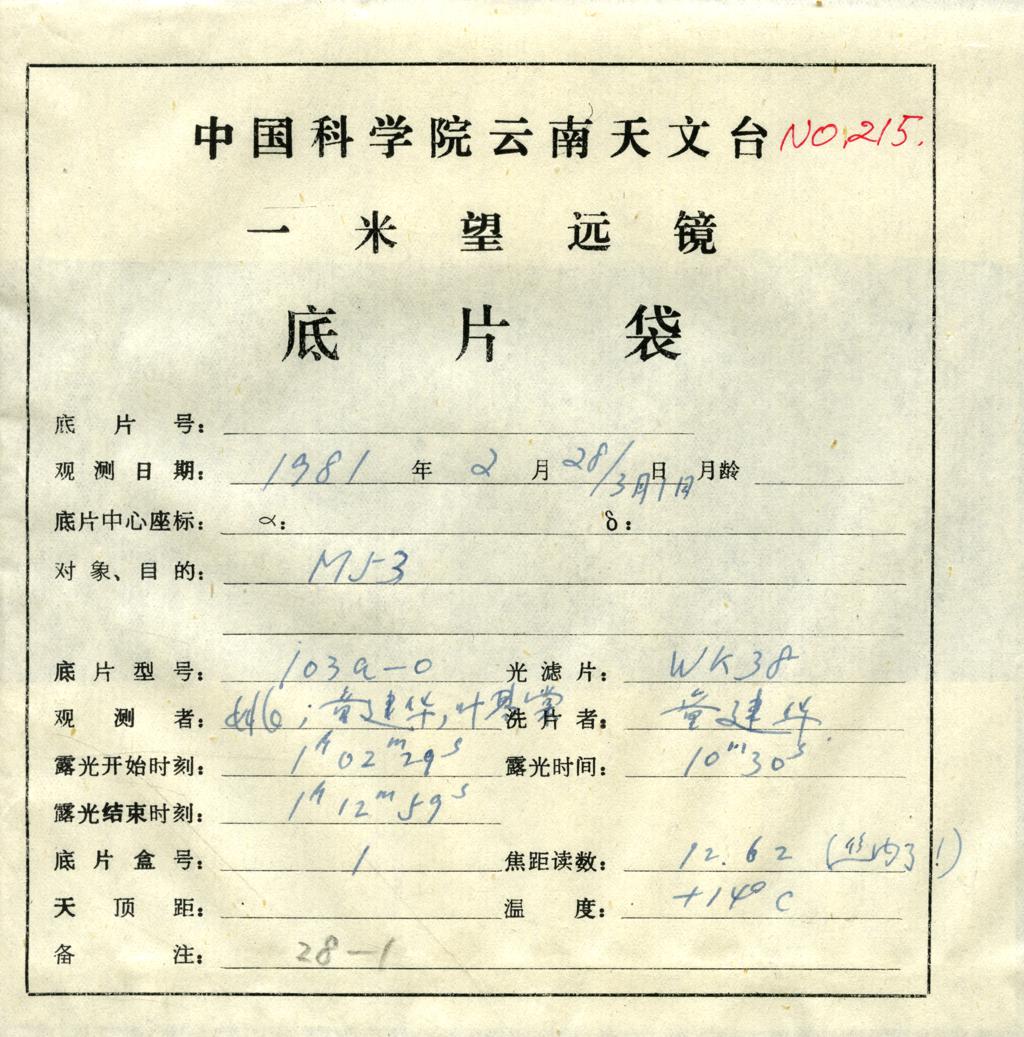 中国科学院云南天文台 NO.215.
一米望远镜
底片袋
底片号：
观测日期： 1981 年 2 月 28/3月1日 日 月龄
底片中心座标： α： δ：
对象、目的： M53
底片型号： 103a-O 光滤片： WK38
观测者： ；童建华，叶基棠 洗片者： 童建华
露光开始时刻： 1h02m29s 露光时间： 10m30s
露光结束时刻： 1h12m59s
底片盒号： 1 焦距读数： 12.62 (内了!)
天顶距： 温度： +14°C
备注： 28-1